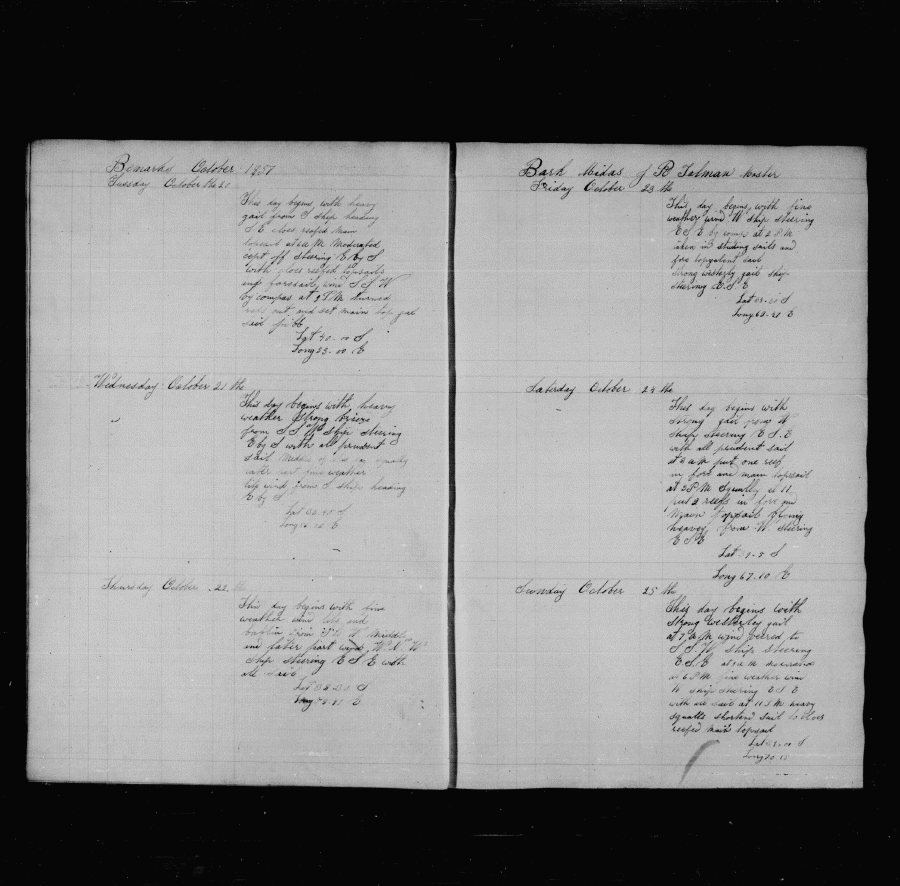 Remarks October 1857
Tuesday October the 20
This day begins with heavy
gail from S ship heading
S E close reefed main
topsail at 6 A M Moderated
cept off steering E by S
with close reefed topsails
and foresail, wind S S W
by compas at 3 P M turned
reefs out and set main top gal
sail jibb
Lat 40.00 S
Long 53.00 E
Wednesday October 21 the
This day begins with heavy
weather strong brieze
from S S W Ship steering
E by S with all prudent
sail Middle of this day squaly
later part fine weather
wind from S ship heading
E by S
Lat S
Long E
Thursday October 22 the
This day begins with fine
weather wind and
baflin from to W Middle
and later part wind W
ship steering E S E with
all sail
Lat 38 S
Long E
Bark Midas of B Tilman Master
Friday October 23 the
This day begins with fine
weather wind W ship steering
E S E by comps at 2 P M
taken in studing sails and
fore topgalent sail
strong westerly gail ship
steering E.S.E
Lat S
Long 63.21 E
Saterday October 24 the
This day begins with
strong gail from W
ship steering E S E
with all prudent sail
at 6 A M put one reef
in fore and main topsail
at 3 P M Squally at 11
put 2 reefs in fore and
Main topsail blowing
heavy from W steering
E S E
Lat S
Long 67.10 E
Sunday October 25 the
This day begins with
strong westerly gail
at 7 A M wind veered to
S S W ship steering
E S E at A M moderated
at 6 P M fine weather wind
W ship steering E S E
with all sail at 11 P M heavy
squalls shortend sail to close
reefed main topsail
Lat S
Long 70